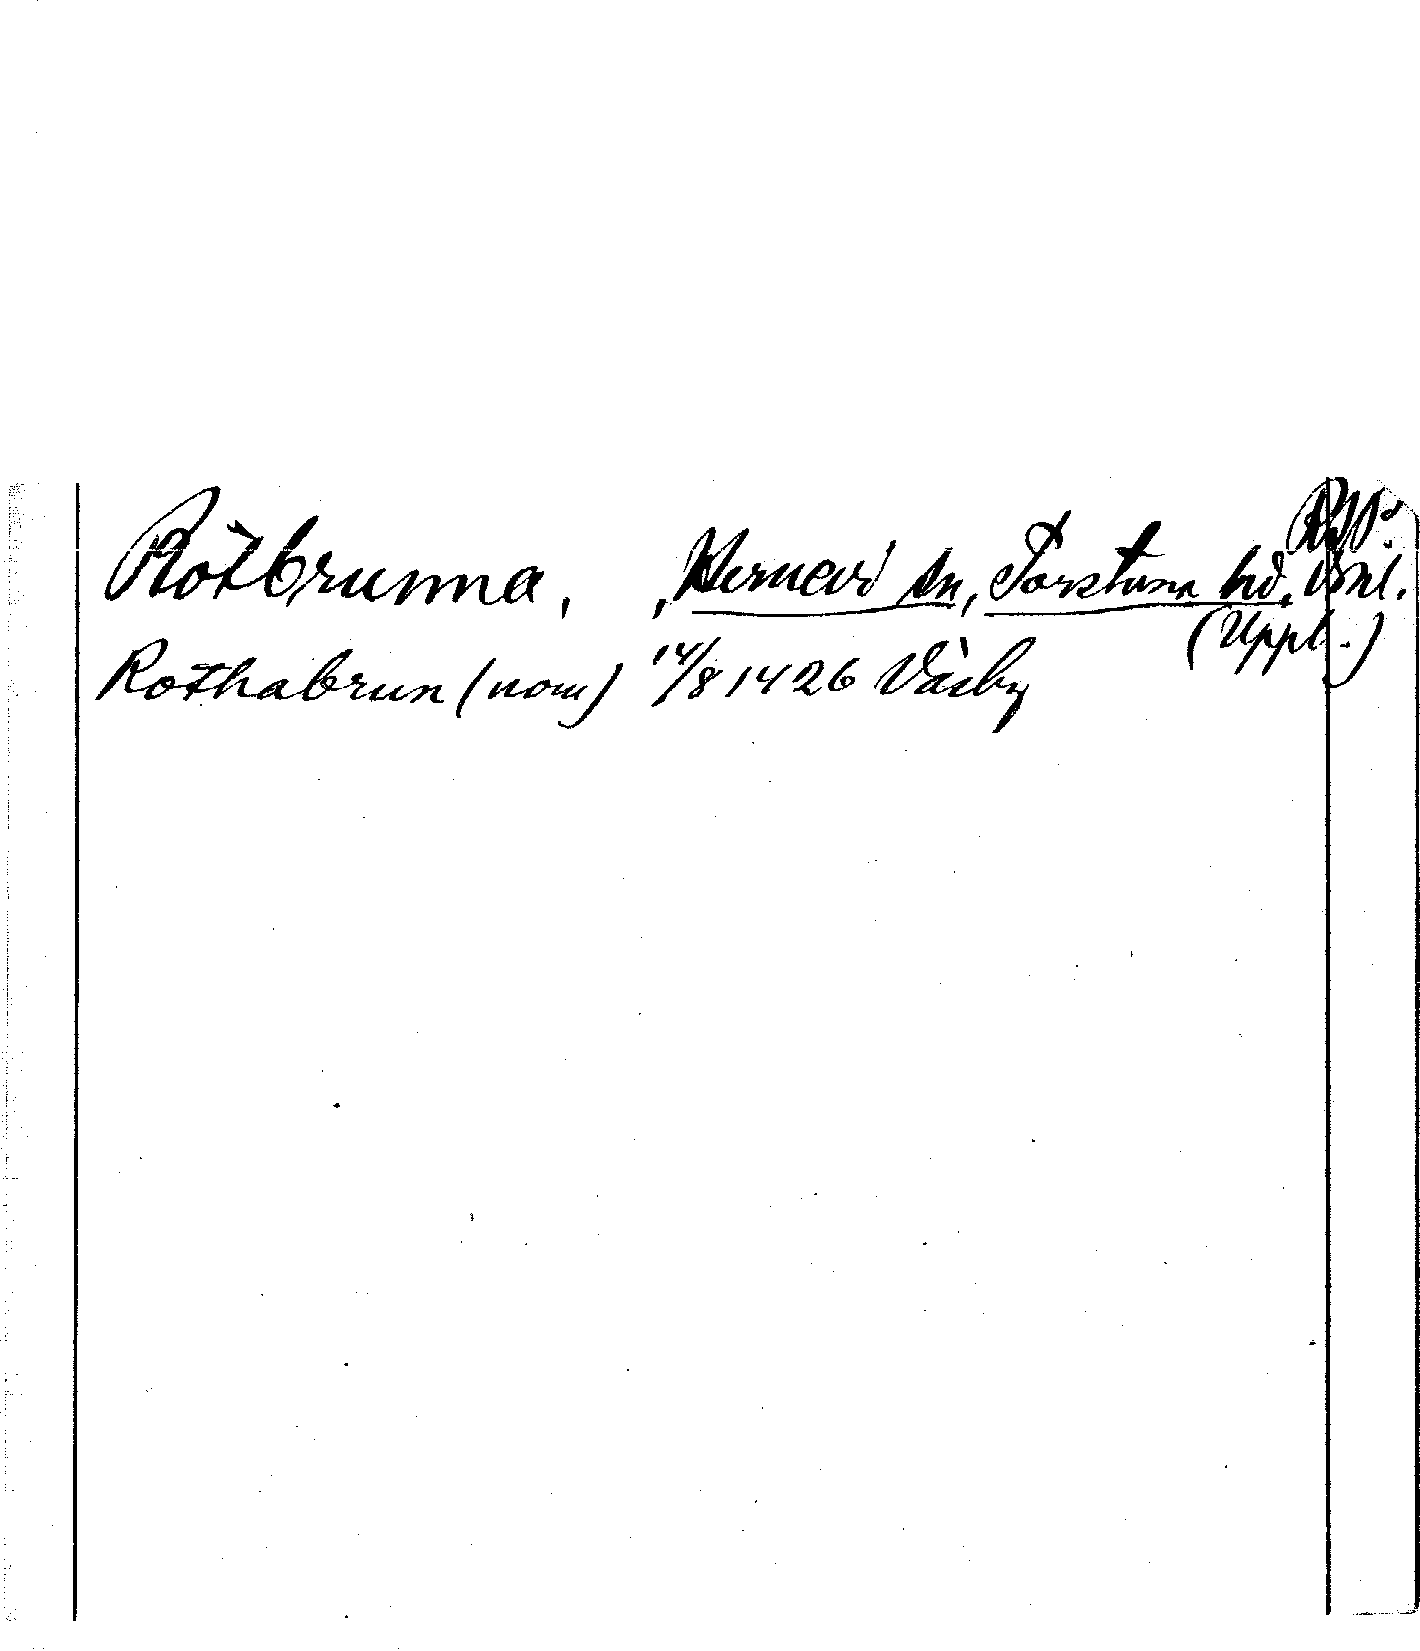 Rotbrunna, , Hernevi sn, Torstuna hd, Vml.
(Uppl.)
Rothabrun (nom) 14/8 1426 Väsby